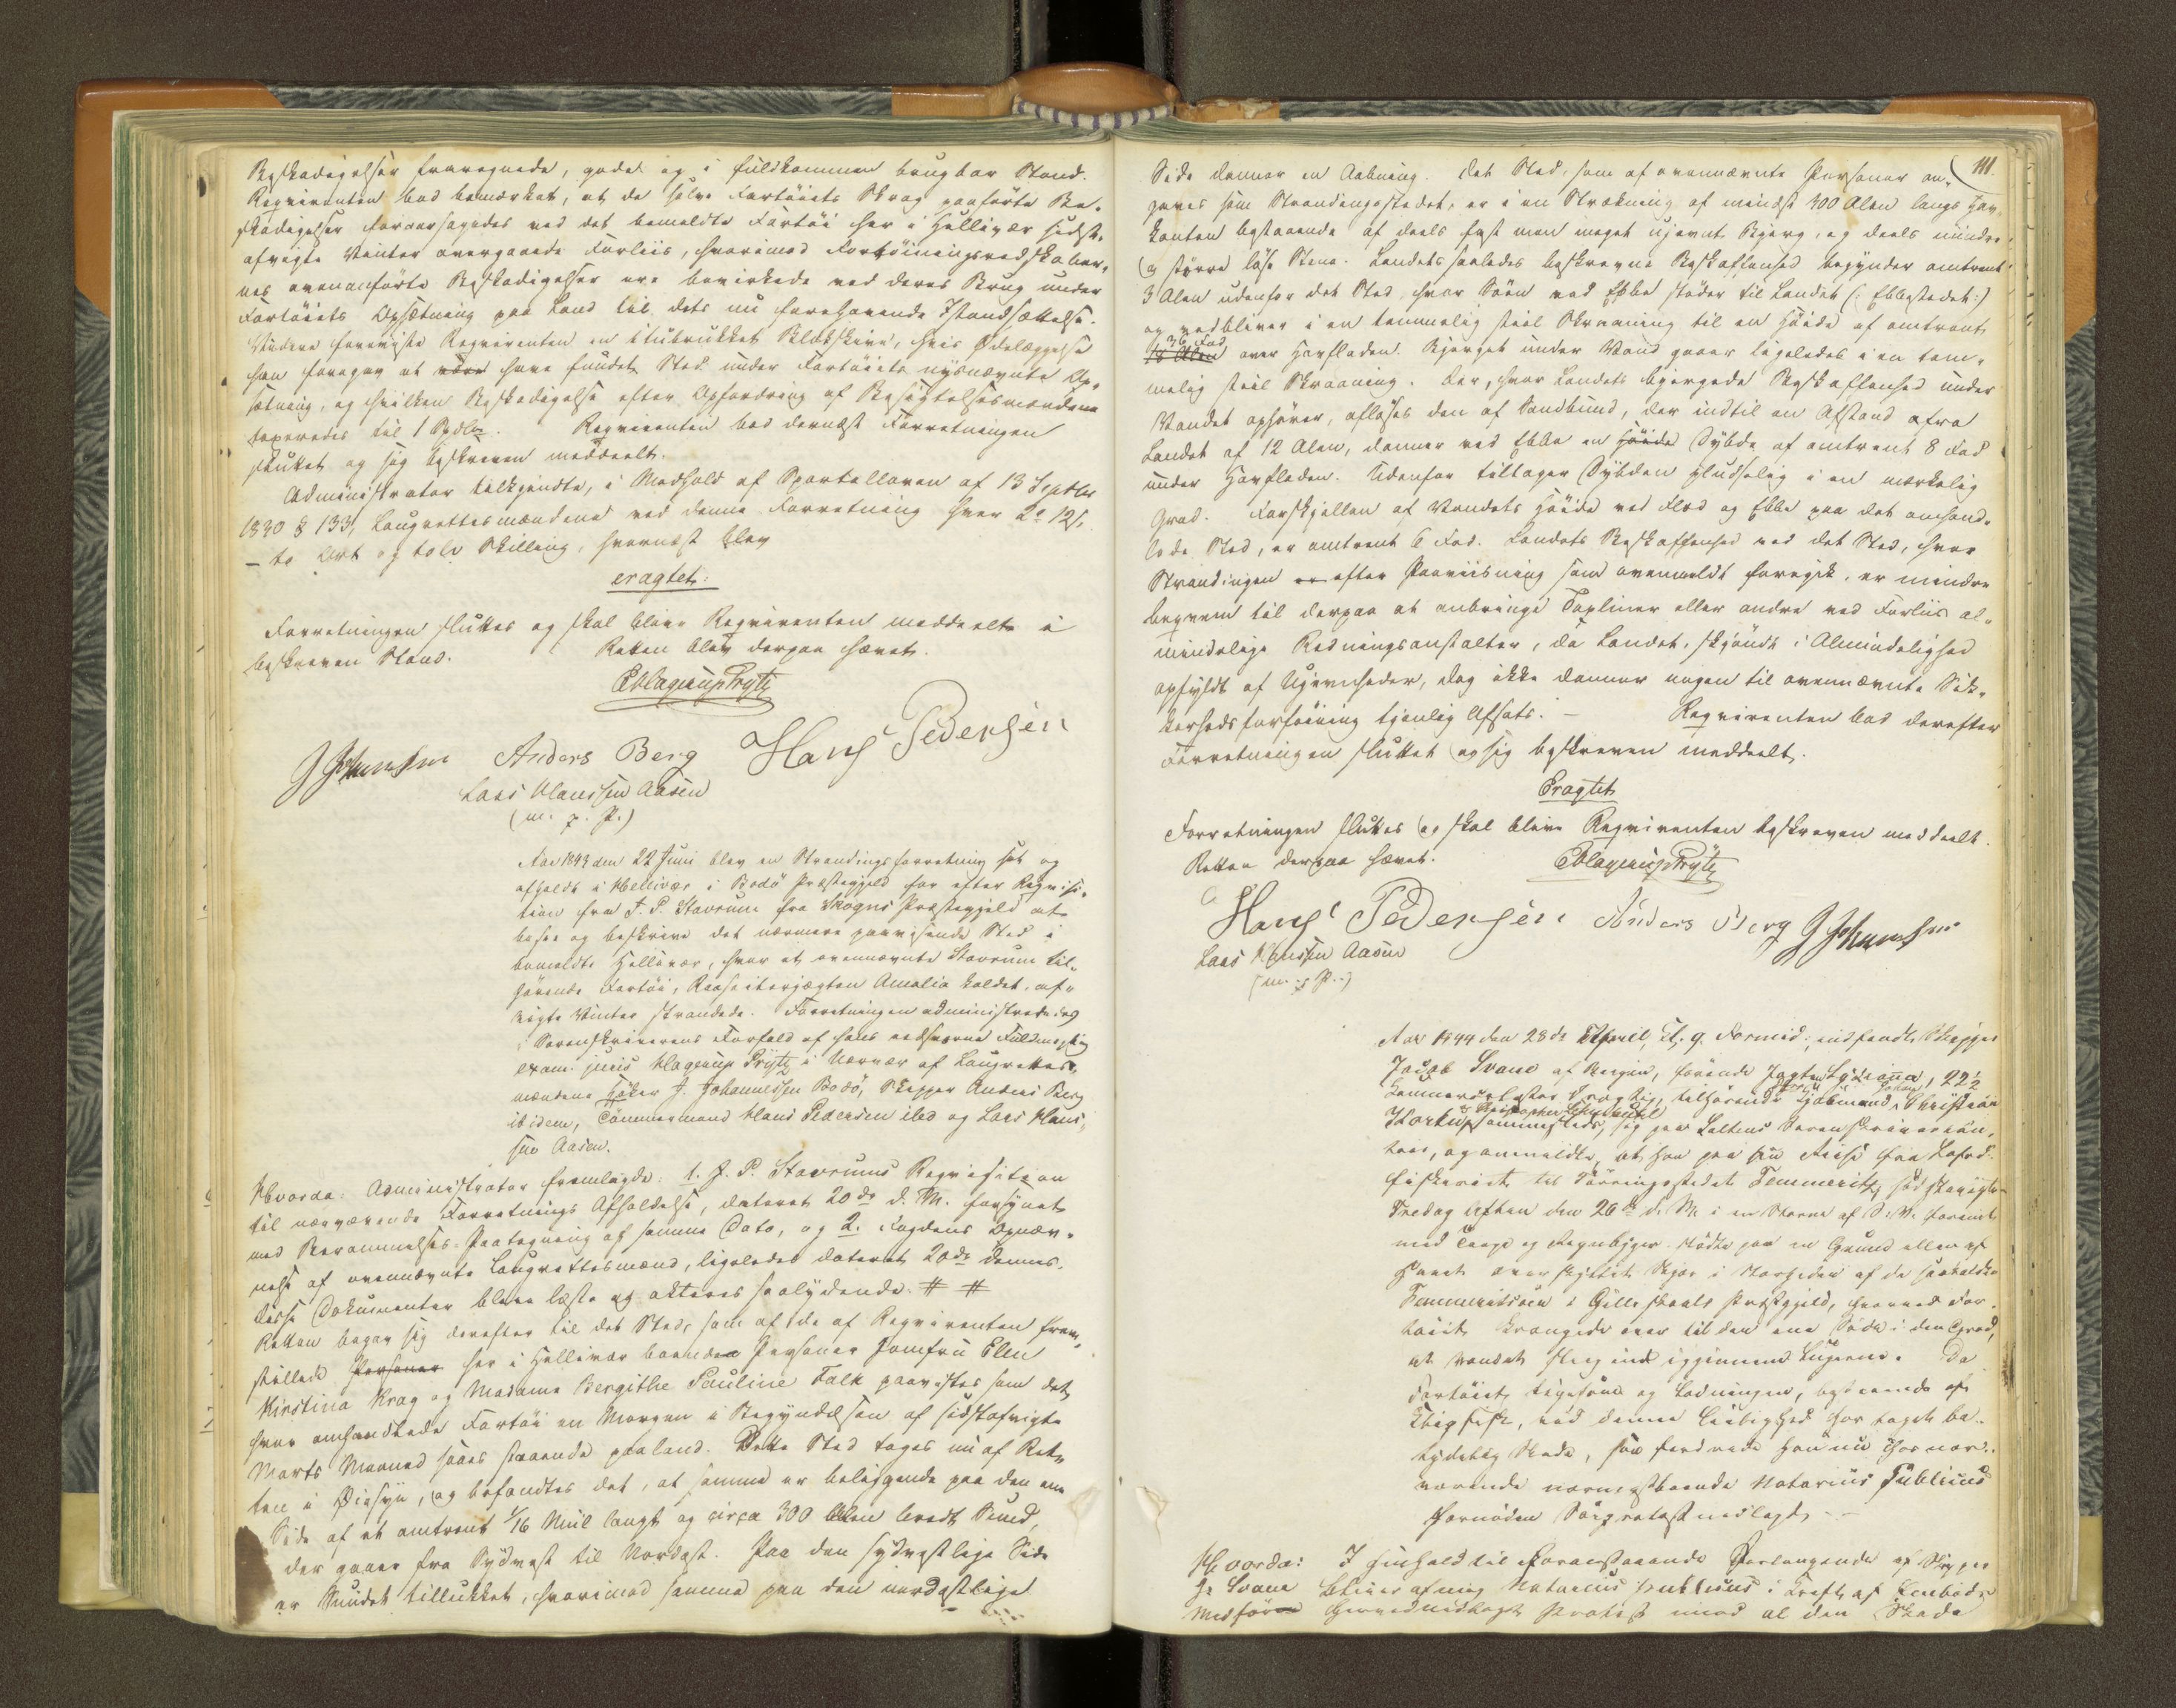 Beskadigelser fraregnede, godt og i fuldkommen brugbar Stand.
Reqvirenten bad bemærket, at de selve Fartøiets Skrog paaførte Be-
skadigelser foraarsagedes ved det bemeldte Fartøi her i Hellivær sidst-
afvigte Vinter overgaaede Forliis, hvorimod Fortøiningsredskaber-
nes ovenanførte Beskadigelser ere bevirkede ved deres Brug under
Fartøiets Opsætning paa Land til dets nu forehavende Istandsættelse.
Videre foreviste Reqvirenten en itubrukket Blokskive, hvis Ødelæggelse
han foregav at være have fundet Sted under Fartøiets nysnævnte Op-
sætning, og hvilken Beskadigelse efter Opfordring af Besigtelsesmændene
taxeredes til 1 Spdlr. Reqvirenten bad dernæst Forretningen
sluttet og sig beskreven meddeelt.
Administrator tilkjendte, i Medhold af Sportelloven af 13 Septbr
1830 § 133, Laugrettesmændene ved denne Forretning hver 2 12 s.
– to Ort og tolv Skilling, hvornæst blev
eragtet:
Forretningen sluttes og skal blive Reqvirenten meddeelt i
beskreven Stand. Retten blev derpaa hævet.
Eblagerup Prytz
J Johannesen Anders Berg Hans Pedersen
Lars Hanssen Aasen
(m. p. P.)
Aar 1843 den 22 Juni blev en Strandingsforretning sat og
afholdt i Hellivær i Bodø Præstegjeld for efter Reqvisi-
tion fra J. P. Stavrum fra Skogns Præstegjeld at
bese og beskrive det nærmere paavisende Sted i
bemeldte Hellivær, hvor et ovennævnte Stavrum til-
hørende Fartøi, Raaseilerjægten Amalia kaldet, af-
vigte Vinter strandede. Forretningen administreredes
i Sorenskriverens Forfald af hans edsvorne Fuldmægtig
exam. juris Klagerup Prytz i Nærvær af Laugrettes-
mændene Høker J. Johannessen Bodø, Skipper Anders Berg
ibidem, Tømmermand Hans Pedersen ibid og Lars Hans-
sen Aasen.
Hvorda: Administrator fremlagde: 1. J. P. Stavrums Reqvisition
til nærværende Forretnings Afholdelse, dateret 20de d. M. forsynet
med Berammelses-Paategning af samme Dato, og 2. Fogdens Opnæv-
nelse af ovennævnte Laugrettesmænd, ligeledes dateret 20de dennes.
Disse Dokumenter bleve læste og akteres saalydende. # #
Retten begav sig derefter til det Sted, som af de af Reqvirenten frem-
stillede Personer her i Hellivær boende Personer Jomfru Elen
Kirstina Krog og Madame Bergithe Pauline Falk paavistes som det,
hvor omhandlede Fartøi en Morgen i Begyndelsen af sidstafvigte
Marts Maaned saaes staaende paa Land. Dette Sted toges nu af Ret-
ten i Øiesyn, og befandtes det, at samme er beliggende paa den ene
Side af et omtrent 1/16 Miil langt og circa 300 Alen bredt Sund,
der gaaer fra Sydvest til Nordost. Paa den sydvestlige Side
er Sundet tillukket, hvorimod samme paa den nordostlige
111.
Side danner en Aabning. Det Sted, som af ovennævnte Personer an-
gaves som Strandingsstedet, er i en Strækning af mindst 300 Alen langs Hav-
kanten bestaaende af deels fast men meget ujevnt Bjerg, og deels mindre
og større løse Stene. Landets saaledes beskrevne Beskaffenhed begynder omtrent
3 Alen udenfor det Sted, hvor Søen ved Ebbe støder til Landet (: Ebbestedet :)
og vedbliver i en temmelig steil Skraaning til en Høide af omtrent
36 Fod
18 Alen over Havfladen. Bjerget under Vand gaaer ligeledes i en tem-
melig steil Skraaning. Der, hvor Landets bjergede Beskaffenhed under
Vandet ophører, afløses den af Sandbund, der indtil en Afstand afra
Landet af 12 Alen, danner ved Ebbe en Høide Dybde af omtrent 8 Fod
under Havfladen. Udenfor tiltager Dybden pludselig i en mærkelig
Grad. Forskjellen af Vandets Høide ved Flod og Ebbe paa det omhand-
lede Sted, er omtrent 6 Fod. Landets Beskaffenhed ved det Sted, hvor
Strandingen er efter Paaviisning som ovenmeldt foregik, er mindre
beqvem til derpaa at anbringe Taxliner eller andre ved Forliis al-
mindelige Redningsanstalter, da Landet, skjøndt i Almindelighed
opfyldt af Ujevnheder, dog ikke danner nogen til ovennævnte Sik-
kerhedsforføining tjenlig Afsats. – Reqvirenten bad derefter
Forretningen sluttet og sig beskreven meddeelt.
Eragtet
Forretningen sluttes og skal blive Reqvirenten beskreven meddeelt.
Retten derpaa hævet. Eblagerup Prytz
Hans Pedersen Anders Berg J Johannesen
Lars Hanssen Aasen
(m. p. P.:)
Aar 1844 den 28de April Kl. 9 Formid. indfandt Skipper
Jacob Svane af Bergen, førende Jagten Lydianna, 22 1/2
Kommercelæster drægtig, tilhørende Kjøbmænd Christian
sammesteds, sig paa Saltens Sorenskrivercon-
toir, og anmeldte, at han paa sin Reise fra Lofod-
fiskeriet til Tørringsstedet Femmeritz sidstafvigte
Fredag Aften den 26de d. M. i en Storm af S.V. forenet
med Taage og Regnbyger stødte paa en Grund eller af
Havet overskyllet Skjær i Nærheden af de saakaldte
Femmeritsøer i Gilleskaals Præstegjeld, hvorved Far-
tøiet krængede over til den ene Side i den Grad,
at Vandet steg ind igjennem Lugerne. Da
Fartøiet ligesom og Ladningen, bestaaende af
, ved denne Leilighed har taget be-
tydelig Skade, saa fordrede han nu hos nær-
værende nærmestboende Notarius Publicus
fornøden Søeprotest nedlagt –
Hvorda: I Henhold til Foranstaaende Forlangende af Skipper
Jb Svane bliver af mig Notarius Publicus i Kraft af Embeds
Medføre herved nedlagt Protest imod al den Skade